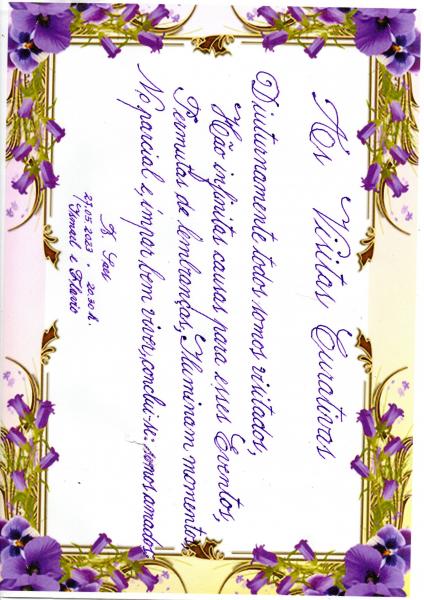 As Visitas Curativas
Diuturnamente todos somos visitados,
Hão infinitas causas para esses Eventos,
Permutas de lembranças, Iluminam momentos
No parcial e, ímpar bem viver, conclui-se: somos amados.
27.05.2023 . 20:30h.
p/ Ismael e Flavio